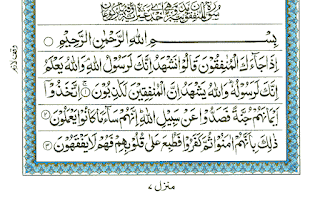 بِسْمِ اللهِ الرَّحْمٰنِ الرَّحِيْمِ
اِذَا جَآءَكَ الْمُنٰفِقُوْنَ قَالُوْا نَشْهَدُ اِنَّكَ لَرَسُوْلُ اللهِ وَاللهُ يَعْلَمُ
اِنَّكَ لَرَسُوْلُهٗ وَاللهُ يَشْهَدُ اِنَّ الْمُنٰفِقِيْنَ لَكٰذِبُوْنَ ۝۱ اِتَّخَذُوْۤا
اَيْمَانَهُمْ جُنَّةً فَصَدُّوْا عَنْ سَبِيْلِ اللهِ اِنَّهُمْ سَآءَ مَا كَانُوْا يَعْمَلُوْنَ ۝۲
ذٰلِكَ بِاَنَّهُمْ اٰمَنُوْا ثُمَّ كَفَرُوْا فَطُبِعَ عَلٰى قُلُوْبِهِمْ فَهُمْ لَا يَفْقَهُوْنَ ۝۳
منزل ۷